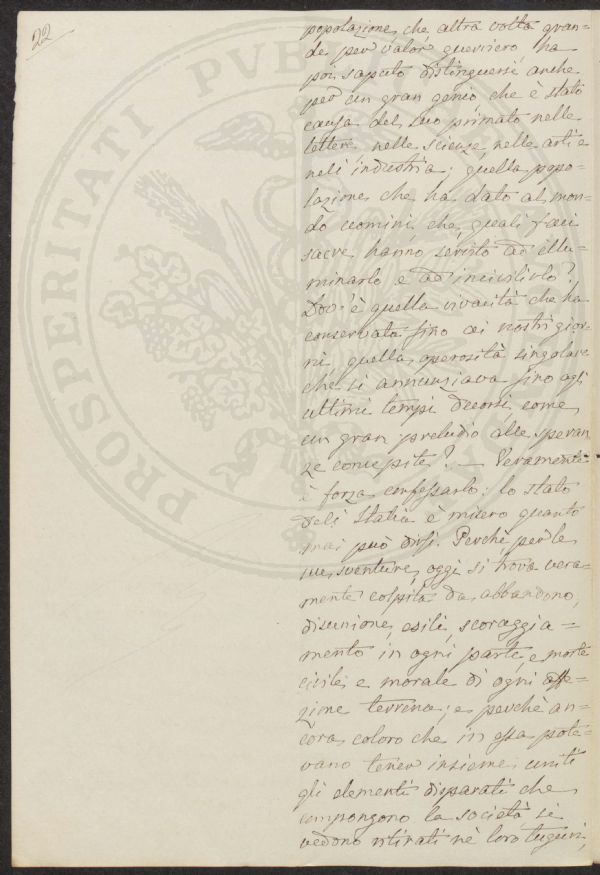 22
popolazione, che altra volta gran=
de per valor guerriero, ha
poi saputo distinguersi anche
per un gran genio, che è stato
causa del suo primato nelle
lettere, nelle scienze, nelle arti e
nell industria; quella popo=
lazione che ha dato al mon=
do uomini che, quali faci
sacre, hanno servito ad illu=
minarlo e ad incivilirlo?
Dov'è quella vivacità che ha
conservata fino ai nostri gior=
ni, quella operosità singolare
che si annunziava fino agli
ultimi tempi decorsi, come
un gran preludio alle speran
ze concepite? — Veramente
è forza confessarlo: lo stato
dell Italia è misero quanto
mai può dirsi. Perchè per le
sue sventure, oggi si trova vera=
mente colpita da abbandono,
disunione, esilî, scoraggia=
mento in ogni parte, e morte
civile e morale di ogni affe=
zione terrena; e perchè an=
cora coloro che in essa pote=
vano tener insieme uniti
gli elementi disparati che
compongono la società si
vedono ritirati nè loro tuguri,
PROSPERITATI PVBL